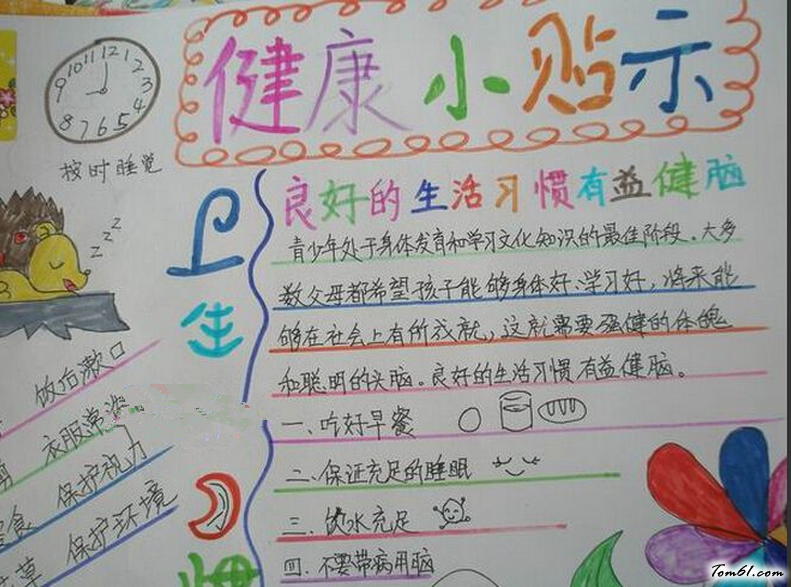 健康小贴示
12 1 2 3 4 5 6 7 8 9 10 11
按时睡觉
z z z
卫生
饭后漱口
衣服常洗
食 保护视力
草 保护环境
良好的生活习惯有益健脑
青少年处于身体发育和学习文化知识的最佳阶段。大多
数父母都希望孩子能够身体好、学习好，将来能
够在社会上有所成就，这就需要强健的体魄
和聪明的头脑。良好的生活习惯有益健脑。
一、吃好早餐
二、保证充足的睡眠
三、饮水充足
四、不要带病用脑
Tom61.com